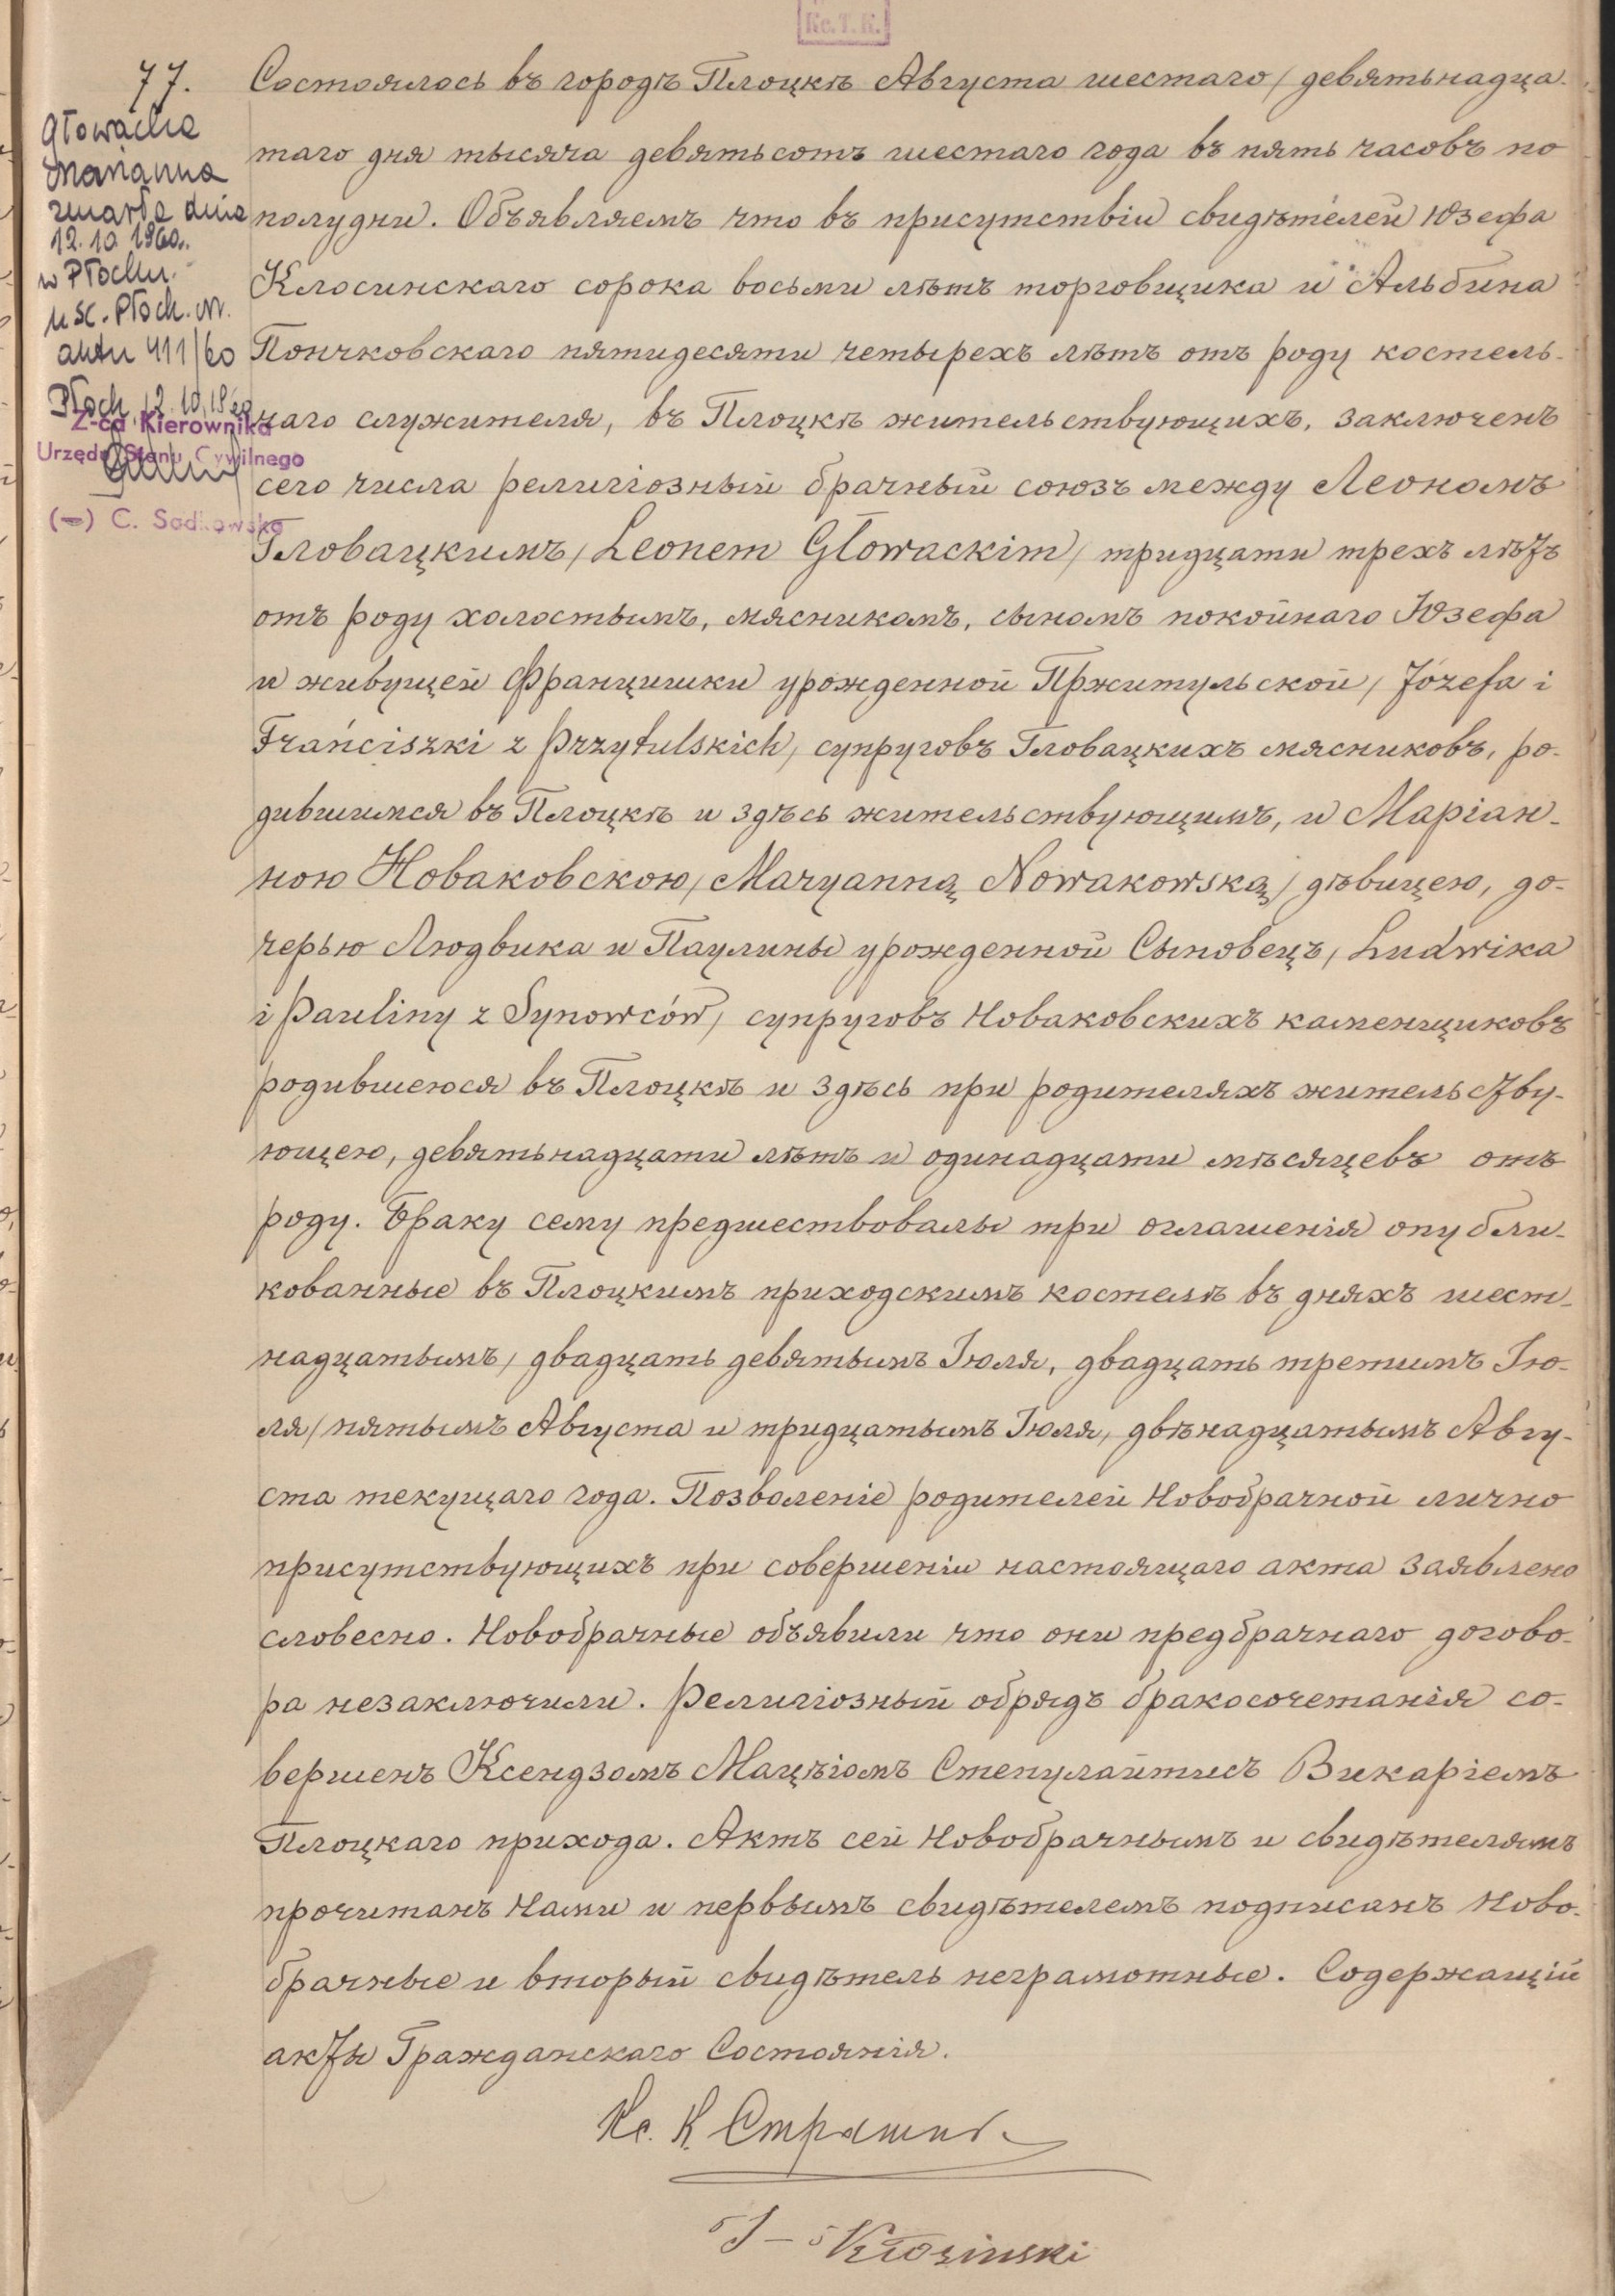 Кс. Т. К.
77.
Głowacka
Marianna
zmarła dnia
12.10.1960.
w Płocku.
USC. Płock. nr.
aktu 411/60
Płock 12.10.1960
Z-ca Kierownika
Urzędu Stanu Cywilnego
(-) C. Sadkowska
Состоялось въ городѣ Плоцкѣ Августа шестаго / девятьнадца-
таго дня тысяча девятьсотъ шестаго года въ пять часовъ по
полудни. Объявляемъ что въ присутствіи свидѣтелей Юзефа
Клосинскаго сорока восьми лѣтъ торговщика и Альбина
Пончковскаго пятидесяти четырехъ лѣтъ отъ роду костель-
наго служителя, въ Плоцкѣ жительствующихъ, заключенъ
сего числа религіозный брачный союзъ между Леономъ
Гловацкимъ / Leonem Głowackim / тридцати трехъ лѣтъ
отъ роду холостымъ, мясникомъ, сыномъ покойнаго Юзефа
и живущей Францишки урожденной Пржитульской / Józefa i
Franciszki z Przytulskich / супруговъ Гловацкихъ мясниковъ, ро-
дившимся въ Плоцкѣ и здѣсь жительствующимъ, и Маріан-
ною Новаковскою / Maryanną Nowakowską / дѣвицею, до-
черью Людвика и Паулины урожденной Сыновецъ / Ludwika
i Pauliny z Synowców / супруговъ Новаковскихъ каменщиковъ
родившеюся въ Плоцкѣ и здѣсь при родителяхъ жительству-
ющею, девятьнадцати лѣтъ и одинадцати мѣсяцевъ отъ
роду. Браку сему предшествовалы три оглашенія опубли-
кованные въ Плоцкимъ приходскимъ костелѣ въ дняхъ шест-
надцатымъ / двадцать девятымъ Іюля, двадцать третимъ Ію-
ля / пятымъ Августа и тридцатымъ Іюля, двѣнадцатымъ Авгу-
ста текущаго года. Позволеніе родителей Новобрачной лично
присутствующихъ при совершеніи настоящаго акта заявлено
словесно. Новобрачные объявили что они предбрачнаго догово-
ра незаключили. Религіозный обрядъ бракосочетанія со-
вершенъ Ксендзомъ Мацѣіомъ Степулайтисъ Викаріемъ
Плоцкаго прихода. Актъ сей Новобрачнымъ и свидѣтелямъ
прочитанъ Нами и первымъ свидѣтелемъ подписанъ Ново-
брачные и вторый свидѣтель неграмотные. Содержащій
акты Гражданскаго Состоянія.
Кс. К.
J - Kłosinski